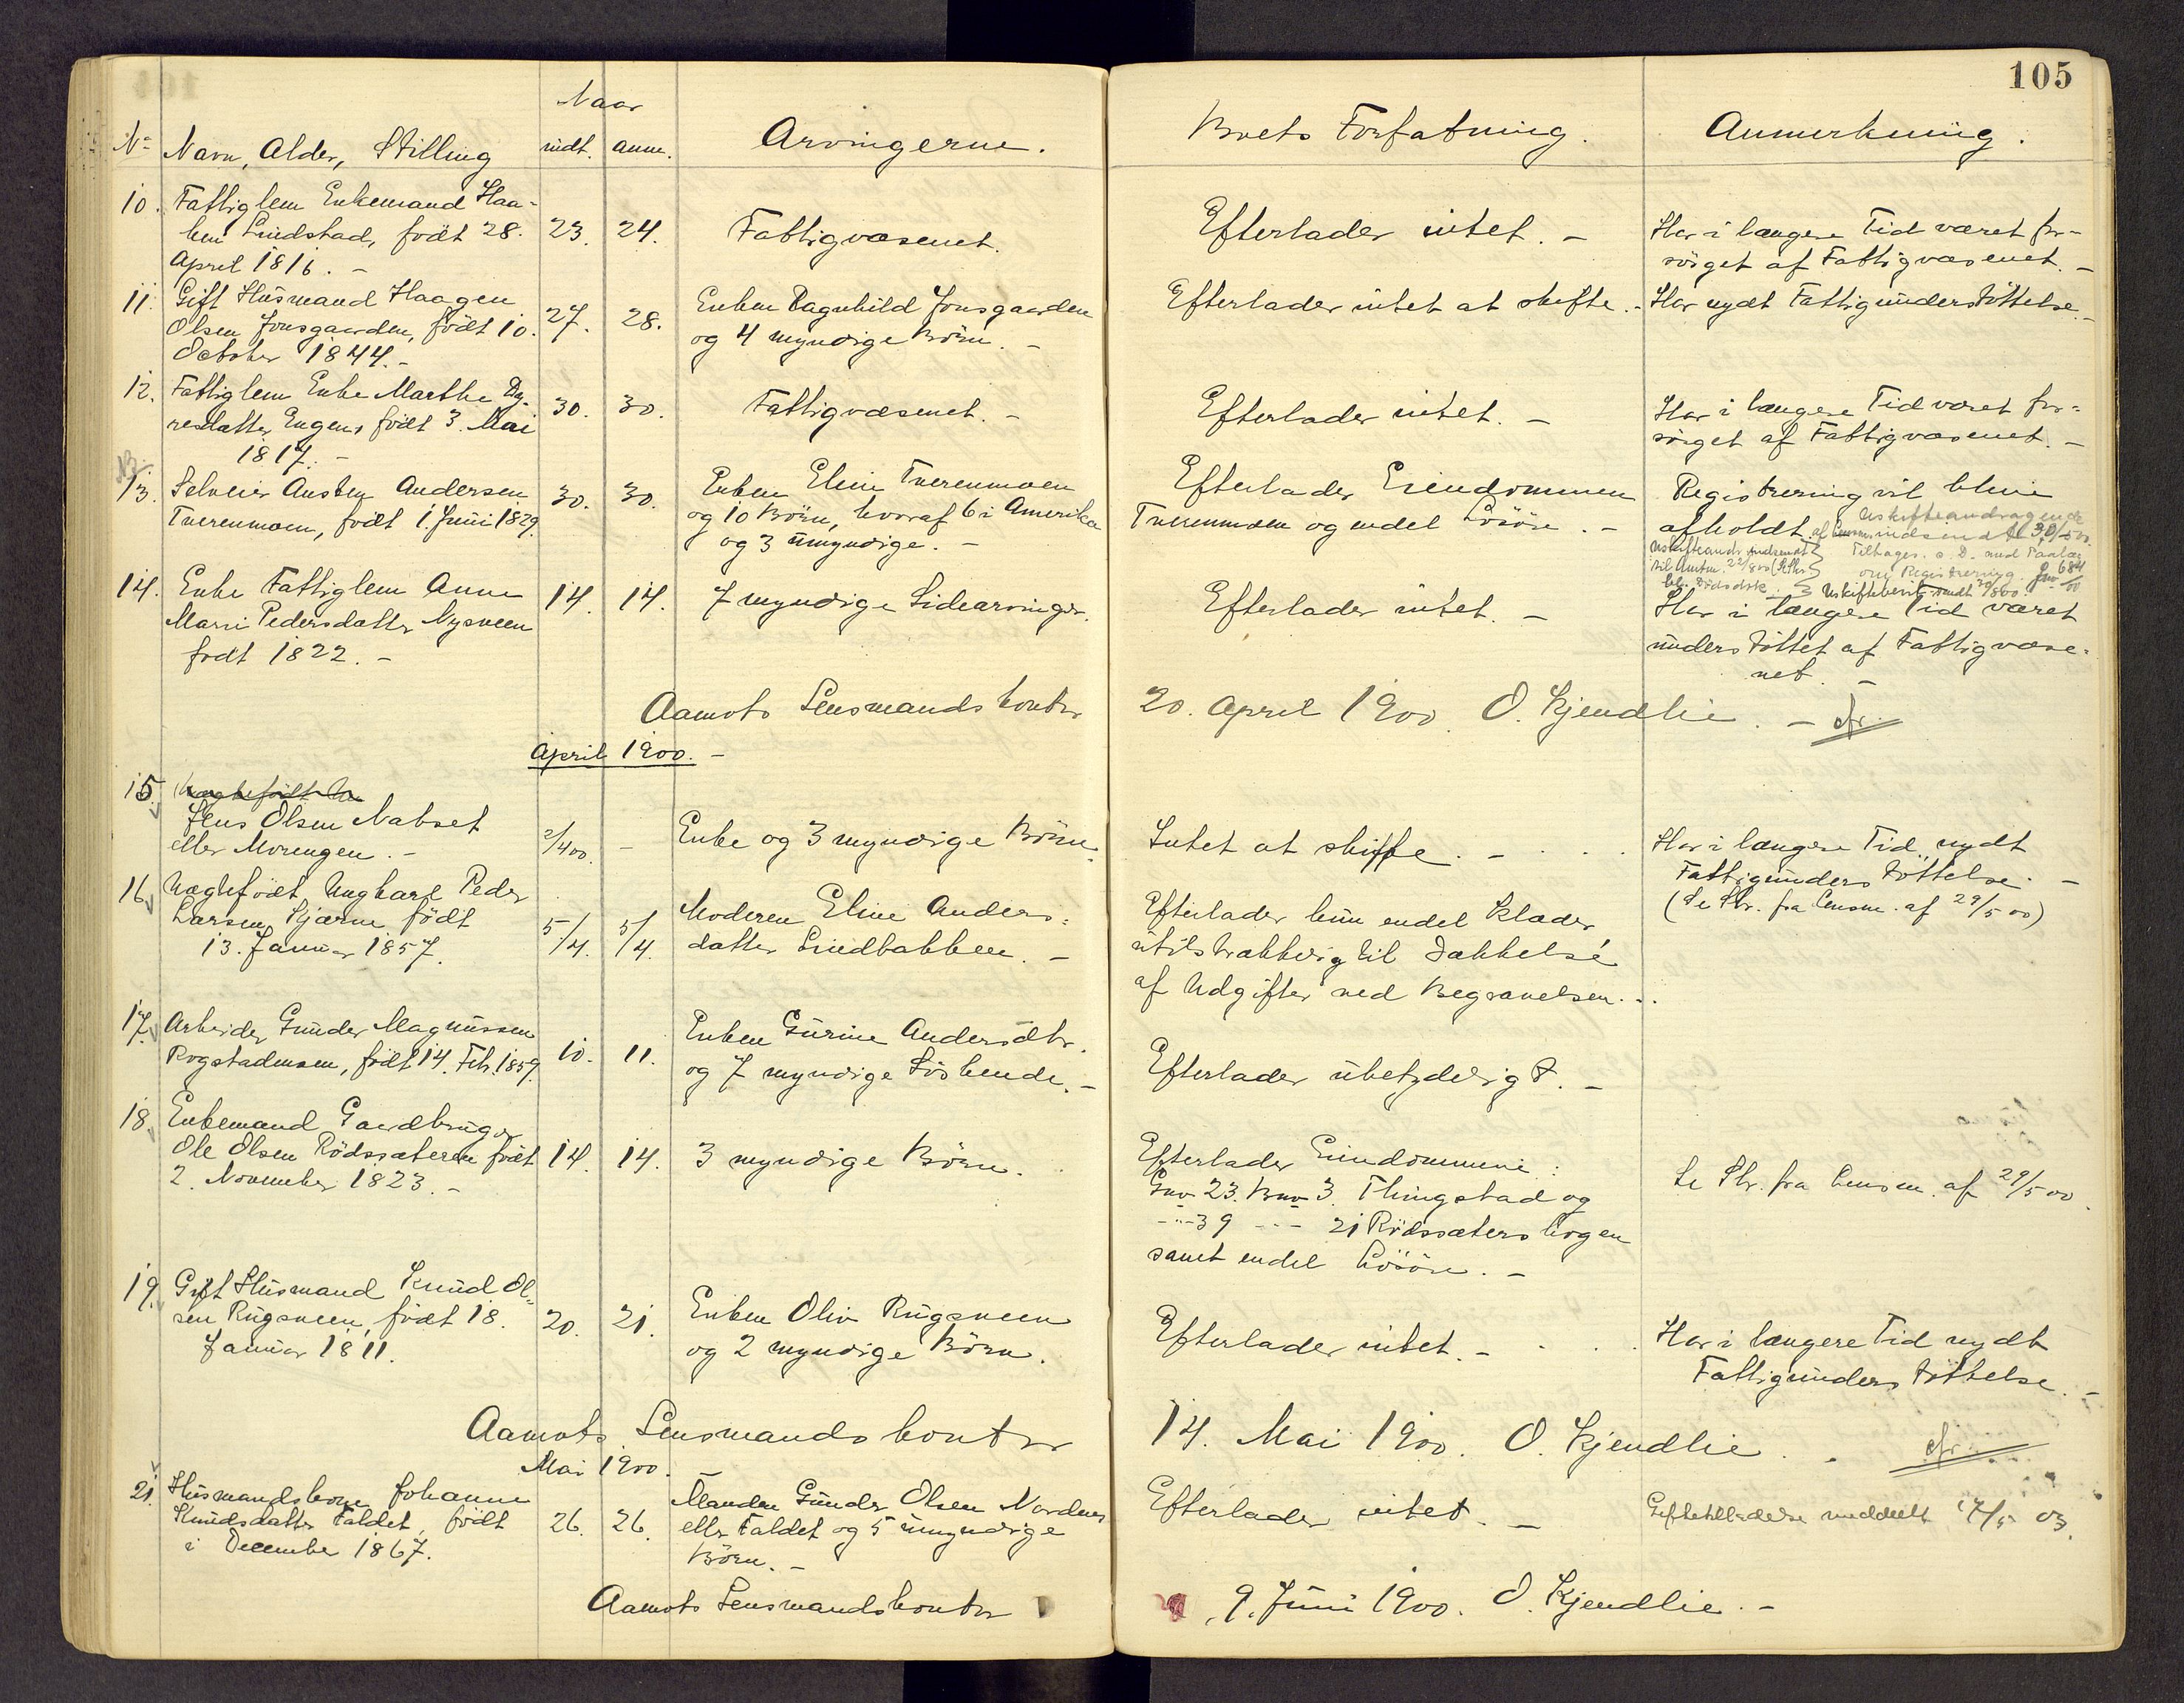 105
Naar
No Navn, Alder, Stilling
indt. anm.
Arvingerne.
Boets Forfatning.
Anmerkning.
10. Fattiglem Enkemand Haa-
ken Lindstad, født 28.
April 1816. -
23. 24.
Fattigvæsenet.
Efterlader intet. -
Har i længere Tid været for-
sörget af Fattigvæsenet. -
11. Gift Husmand Haagen
Olsen Jonsgaarden, født 10.
October 1844. -
27. 28.
Enken Ragnhild Jonsgaarden
og 4 myndige Börn. -
Efterlader intet at skifte. -
Har nydt Fattigunderstöttelse. -
12. Fattiglem Enke Marthe
resdatter Engen, født 3. Mai
1817. -
30. 30.
Fattigvæsenet. -
Efterlader intet. -
Har i længere Tid været for-
sörget af Fattigvæsenet. -
13. Selveier Austen Andersen
Tverenmoen, født 1. Juni 1829.
30. 30.
Enken Eline Tverenmoen
og 10 Börn, hvoraf 6 i Amerika
og 3 umyndige. -
Efterlader Eiendommen
Tverenmoen og endel Lösöre. -
Registrering vil blive
afholdt af Lensm.
Uskifteandragende
indsendt 30/5 00.
Uskifteandr. indsendt
til Amtm. 22/8 00
Tilbages. s. D. med Paalæg
om Registrering. Jno 684/00
Uskiftebevil. sendt 30/8 00.
14. Enke Fattiglem Anne
Marri Pedersdatter Nysveen
født 1822. -
14. 14.
7 myndige Sidearvinger.
Efterlader intet. -
Har i længere Tid været
understöttet af Fattigvæse-
net. -
Aamots Lensmandskontor 20. April 1900. O. Kjendlie. -
April 1900. -
15. Jens Olsen Nabset
eller Morengen. -
2/4 00. -
Enke og 3 myndige Börn.
Intet at skifte. -
Har i længere Tid nydt
Fattigunderstöttelse. -
(Se Skr. fra Lensm. af 29/5 00)
16. Vægtefödt Ungkarl Peder
Larsen Kjærne født
13. Januar 1857.
5/4 5/4.
Moderen Eline Anders-
datter Lindbakken. -
Efterlader kun endel Klæder
utilstrækkelig til Dækkelse
af Udgifter ved Begravelsen. -
17. Arbeider Gunder Magnussen
Rogstadmoen, født 14. Feb. 1859.
10. 11.
Enken Gurine Andersdtr.
og 7 myndige Söskende. -
Efterlader ubetydeligt. -
18. Enkemand Gaardbruger
Ole Olsen Rödssæteren født
2. November 1823. -
14. 14.
3 myndige Börn.
Efterlader Eiendommene:
Gno 23. Bno 3. Thingstad og
-"- 39 -"- 21 Rödssæterskogen
samt endel Lösöre. -
Se Skr. fra Lensm. af 29/5 00.
19. Gift Husmand Knud Ol-
sen Rugsveen, født 18.
Januar 1811.
20. 21.
Enken Oliv Rugsveen
og 2 myndige Börn.
Efterlader intet. -
Har i længere Tid nydt
Fattigunderstöttelse. -
Aamots Lensmandskontor 14. Mai 1900. O. Kjendlie.
Mai 1900. -
21. Husmandskone Johanne
Knudsdatter Faldet, født
i December 1867.
26. 26.
Manden Gunder Olsen Norderen
eller Faldet og 5 umyndige
Börn. -
Efterlader intet. -
Giftetilladelse meddelt 17/5 03.
Aamots Lensmandskontor 9. Juni 1900. O. Kjendlie. -